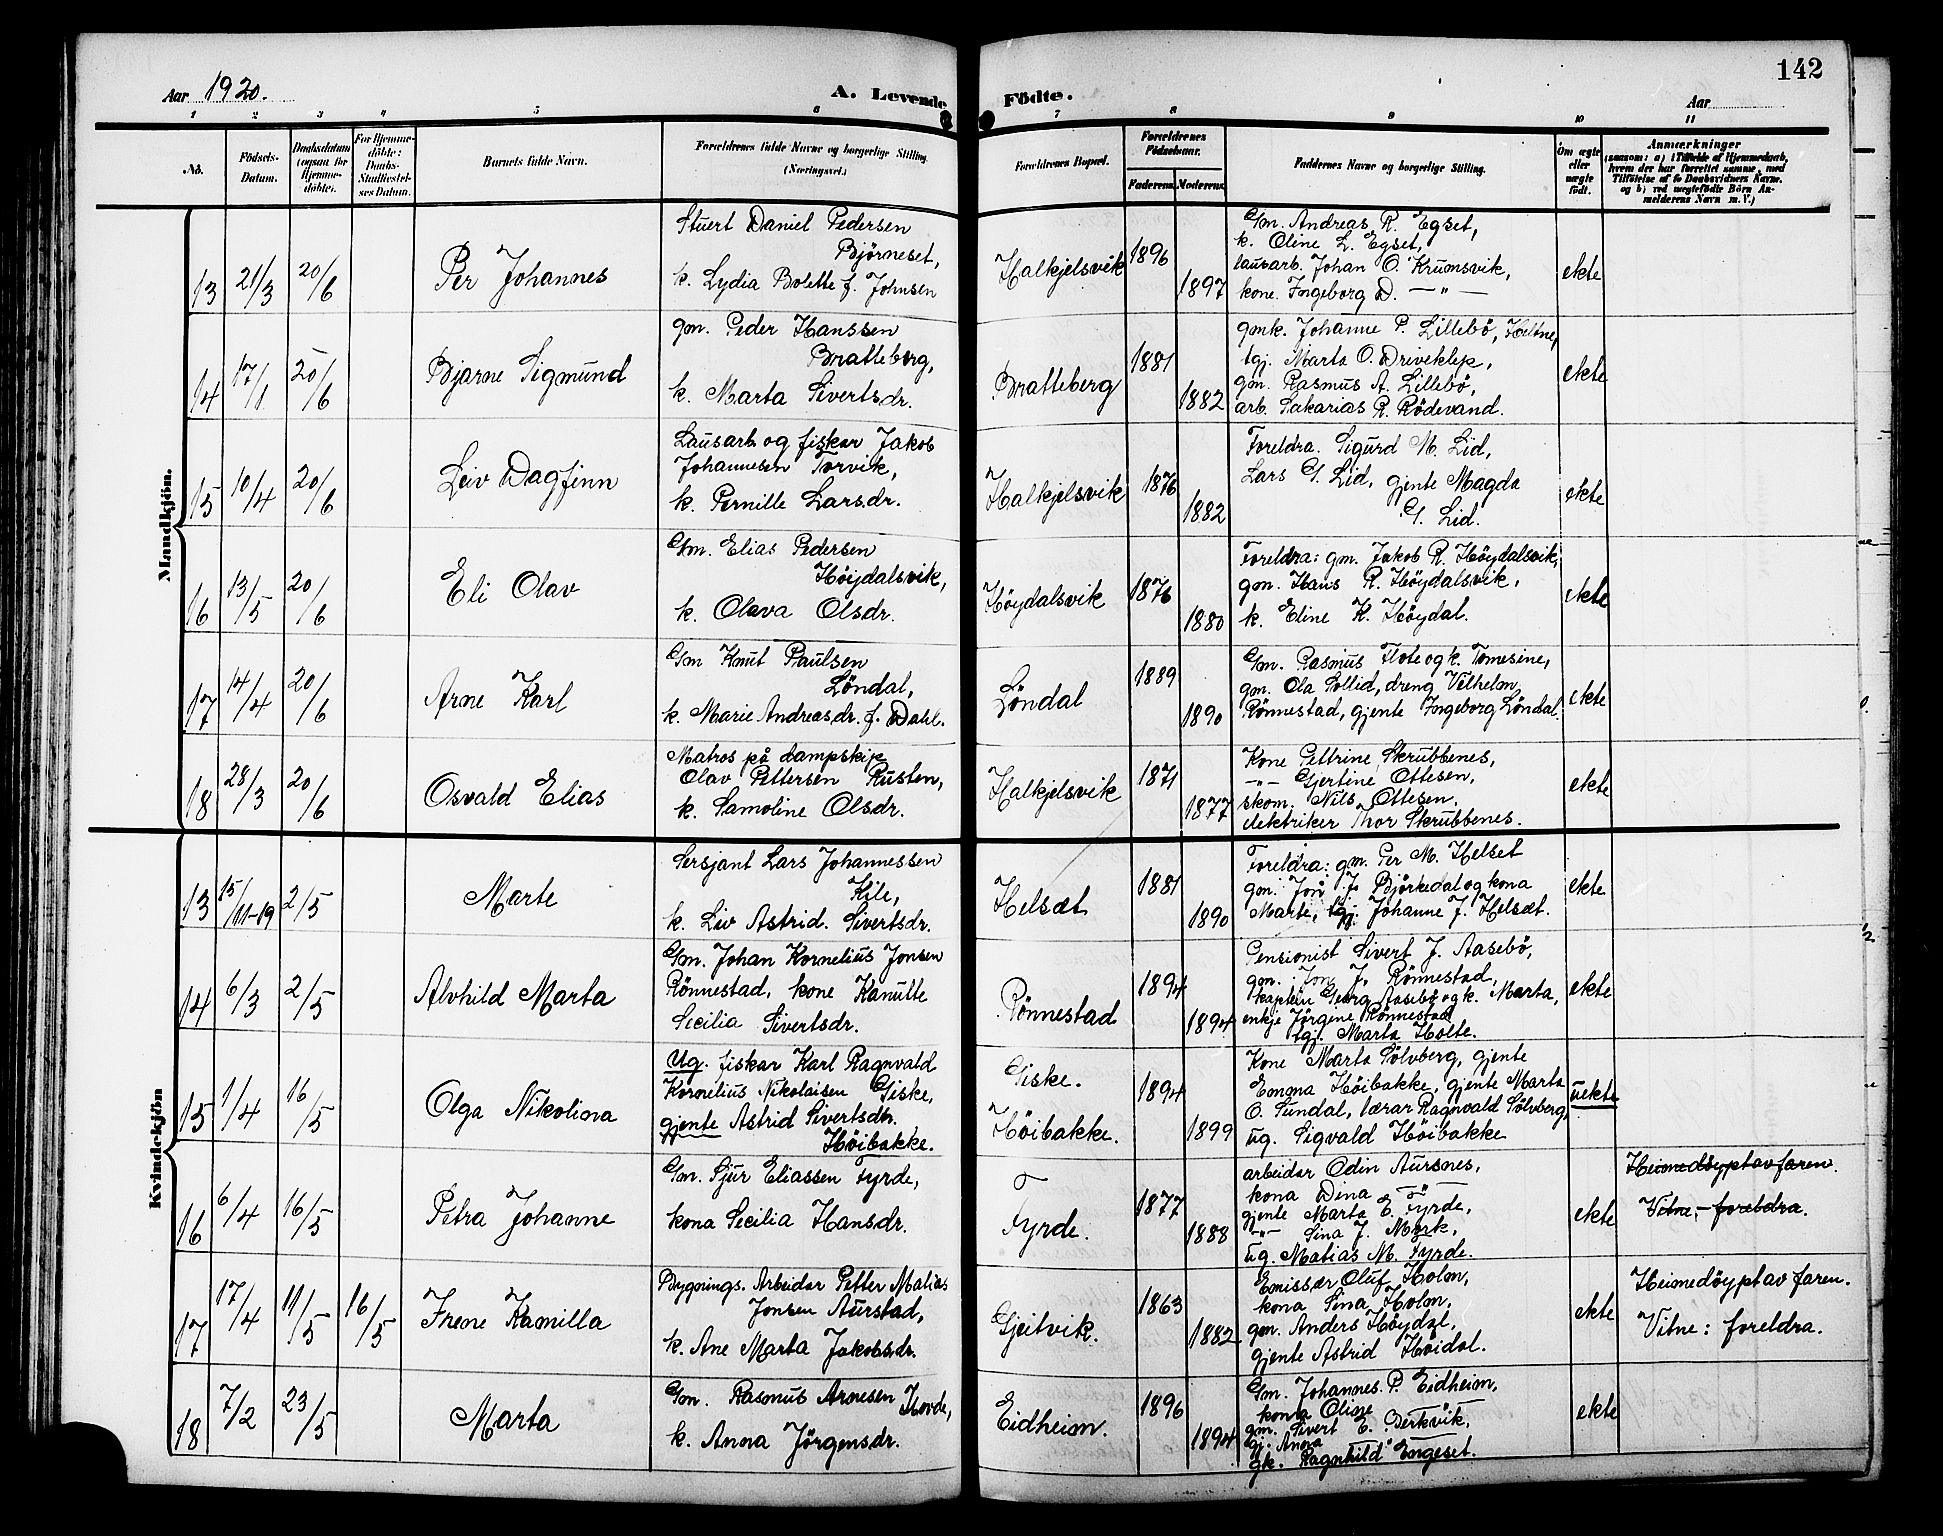 142
Aar 1920.
A. Levende Födte.
Aar
1 2 3 4 5 6 7 8 9 10 11
No.
Födsels-Datum.
Daabsdatum (ogsaa for Hjemmedöbte).
For Hjemmedöbte: Daabs-Stadfæstelses Datum.
Barnets fulde Navn.
Forældrenes fulde Navne og borgerlige Stilling.
(Næringsvei.)
Forældrenes Bopæl.
Forældrenes Fødselsaar.
Faderens. Moderens.
Faddernes Navne og borgerlige Stilling.
Om ægte eller uægte födt.
Anmærkninger
(saasom: a) i Tilfælde af Hjemmedaab, hvem der har forrettet samme, med Tilföielse af to Daabsvidners Navne. og b) ved uægtefödte Börn Anmelderens Navn m. V.)
Mandkjön.
13 21/3 20/6 Per Johannes
Stuert Daniel Pedersen
Björneset,
k. Lydia Bolette f. Johnsen
Halkjelsvik 1896 1897
Gm. Andreas R. Egset,
k. Oline L. Egset,
lausarb. Johan O. Krumsvik,
kone. Ingeborg D. — " —
ekte
14 17/1 20/6 Bjarne Sigmund
gm. Peder Hanssen
Bratteberg,
k. Marta Sivertsdr.
Bratteberg 1881 1882
gmk. Johanne P. Lillebö, Heltne,
tgj. Marta O. Driveklep,
gm. Rasmus A. Lillebö,
arb. Sakarias R. Rödevand.
ekte
15 10/4 20/6 Leiv Dagfinn
Lausarb og fiskar Jakob
Johannesen Torvik,
k. Pernille Larsdr.
Halkjelsvik 1876 1882
Foreldra. Sigurd M. Lid,
Lars G. Lid, gjente Magda
G. Lid.
ekte
16 13/5 20/6 Eli Olav
Gm. Elias Pedersen
Höijdalsvik,
k. Olava Olsdr.
Höydalsvik 1876 1880
Foreldra: gm. Jakob R. Höydalsvik,
gm. Hans R. Höydalsvik,
k. Eline K. Höydal.
ekte
17 14/4 20/6 Arne Karl
Gm Knut Paulsen
Löndal,
k. Marie Andreasdr. f. Dahl.
Löndal 1889 1890
Gm. Rasmus Flote og k. Tomesine,
gm. Ola Sollid, dreng Vilhelm
Rönnestad, gjente Ingeborg Löndal.
ekte
18 28/3 20/6 Osvald Elias
Matros på dampskip
Olav Pettersen Rusten,
k. Samoline Olsdr.
Halkjelsvik 1871 1877
Kone Pettrine Skrubbenes,
— " — Gjertine Ottesen,
skom. Nils Ottesen,
elektriker Thor Skrubbenes.
ekte
Kvindekjön
13 15/11-19 2/5 Marte
Sersjant Lars Johannessen
Kile,
k. Liv Astrid. Sivertsdr.
Helsæt 1881 1890
Foreldra: gm. Per M. Helset
gm. Jon J. Björkedal og kona
Marte, tgj. Johanne J. Helsæt.
ekte
14 6/3 2/5 Alvhild Marta
Gm. Johan Kornelius Jonsen
Rönnestad, kone Kanutte
Secilia Sivertsdr.
Rönnestad 1894 1894
Pensionist Sivert J. Aasebö,
gm. Jon J. Rönnestad,
kaptein Georg Aasebö og k. Marta,
enkje Jörgine Rönnestad
tgj. Marta Holte.
ekte
15 1/4 16/5 Olga Nikoliova
Ug. fiskar Karl Ragnvald
Kornelius Nikolaisen Giske,
gjente Astrid Sivertsdtr.
Höibakke.
Giske.
Höibakke. 1894 1899
Kone Marta Sölvberg, gjente
Emma Höibakke, gjente Marta
O. Sundal, lærar Ragnvald Sölvberg,
ug. Sigvald Höibakke
uekte
16 6/4 16/5 Petra Johanne
Gm. Sjur Eliassen Fyrde,
kona Secilia Hansdr.
Fyrde. 1877 1888
arbeidar Odin Aursnes,
kona Dina — " —
gjente Marta E. Fyrde,
— " — Sina J. Mork,
ug. Matias M. Fyrde.
ekte
Heimedöypt av faren.
Vitne, – foreldra.
17 17/4 11/5 16/5 Irene Kamilla
Bygnings. Arbeidar Petter Matias
Jonsen Aurstad,
k. Ane Marta Jakobsdr.
Gjeitvik. 1863 1882
Emissær Oluf Holm,
kona Sina Holm,
gm. Anders Höydal,
gjente Astrid Höidal.
ekte
Heimedöypt av faren.
Vitne: foreldra.
18 7/2 23/5 Marta
Gm. Rasmus Arnesen Hovde,
k. Anna Jörgensdr.
Eidheim. 1896 1894
Gm. Johannes. P. Eidheim,
kona Oline — " —
gm. Sivert E. Berkvik,
gj. Anna — " —
gk. Ragnhild Engeset.
ekte